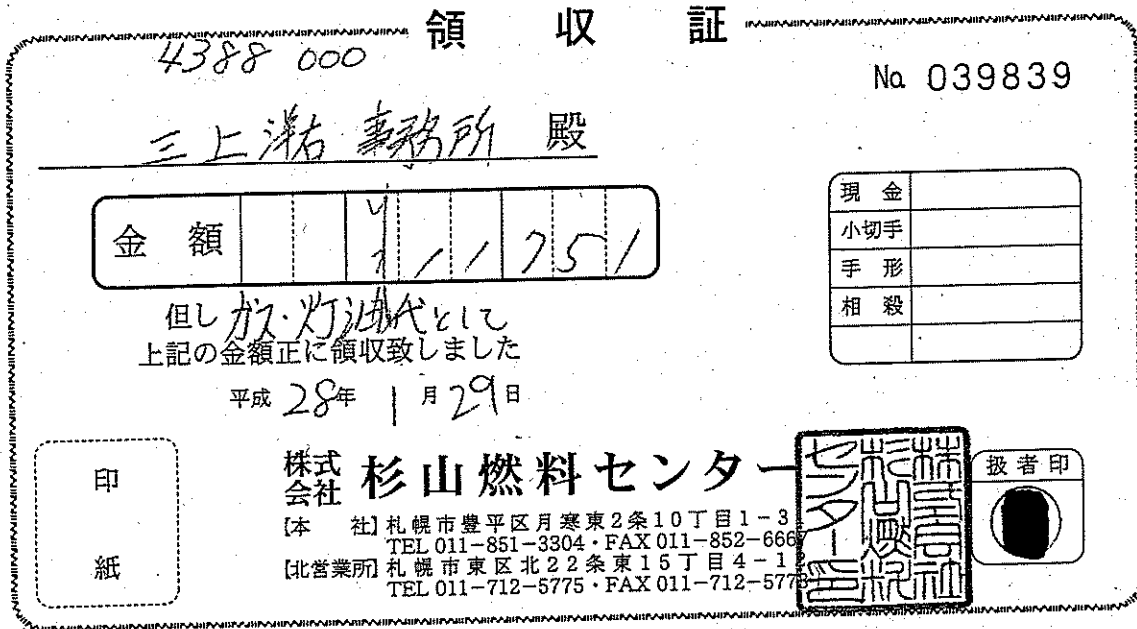 領収証
4388 000
No. 039839
三上洋右 事務所 殿
金額 ¥11751
現金
小切手
手形
相殺
但し ガス・灯油代として
上記の金額正に領収致しました
平成 28年 1月29日
印紙
株式会社 杉山燃料センター
株式会社杉山燃料センター印
扱者印
【本 社】札幌市豊平区月寒東2条10丁目1-3
TEL 011-851-3304・FAX 011-852-6667
【北営業所】札幌市東区北22条東15丁目4-1
TEL 011-712-5775・FAX 011-712-5773